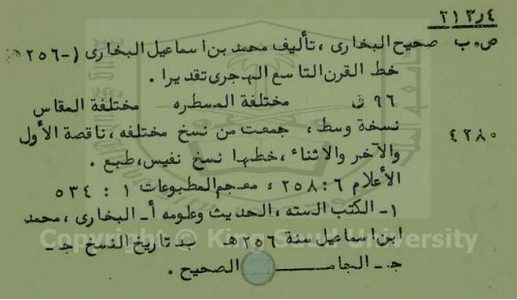 ٢١٣ر٤
ص٠ب صحيح البخارى ، تأليف محمد بن اسماعيل البخارى (-٢٥٦هـ
خط القرن التاسع الهجرى تقديرا .
٩٦ ق مختلفة المسطره مختلفة المقاس
٤٢٨٠ نسخة وسط ، جمعت من نسخ مختلفه ، ناقصة الأول
والآخر والاثناء ، خطها نسخ نفيس ، طبع .
الأعلام ٦ : ٢٥٨ ، معجم المطبوعات ١ : ٥٣٤
١ـ الكتب السته ، الحديث وعلومه أـ البخارى ، محمد
ابن اسماعيل سنة ٢٥٦هـ ب ـ تاريخ النسخ جـ ـ
جـ ـ الجامـــــــع الصحيح .
Copyright © King Saud University